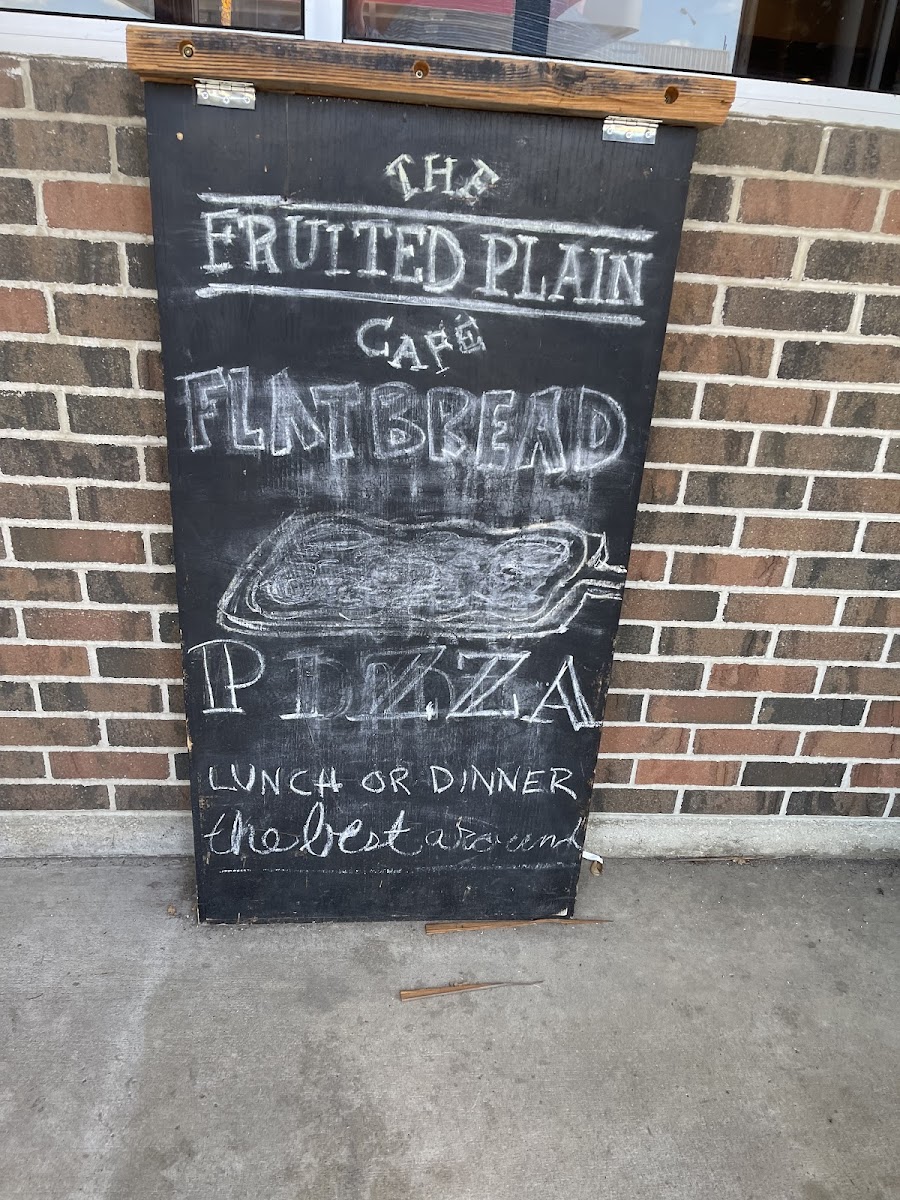 THE
FRUITED PLAIN
CAFÉ
FLATBREAD
PIZZA
LUNCH OR DINNER
the best around